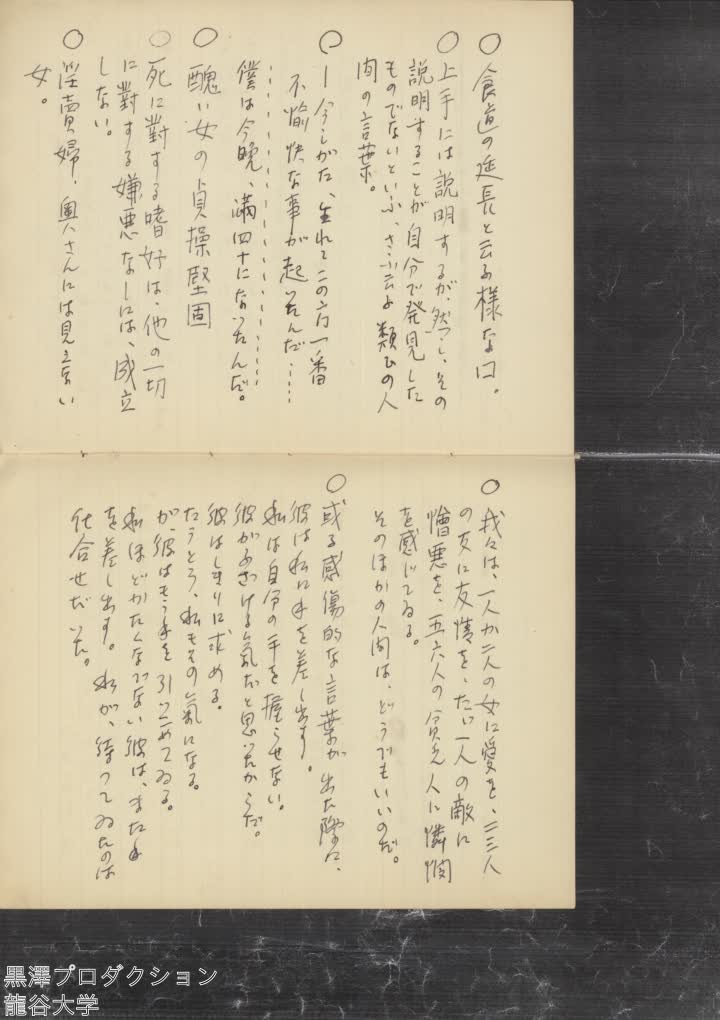 ○ 食道の延長と云ふ様な口。
○ 上手には説明するが、然し、その
説明することが自分で発見した
ものでないといふ、さう云ふ類ひの人
間の言葉。
○ ー今しがた、生れてこの方一番
不愉快な事が起つたんだ……
僕は今晩、満四十になつたんだ。
○ 醜い女の貞操堅固
○ 死に對する嗜好は、他の一切
に對する嫌悪なしには、成立
しない。
○ 淫賣婦、奥さんには見えない
女。
○ 我々は、一人か二人の女に愛を、二三人
の友に友情を、たゞ一人の敵に
憎悪を、五六人の貧乏人に憐憫
を感じてゐる。
そのほかの人間は、どうでもいいのだ。
○ 或る感傷的な言葉が出た際に、
彼は私に手を差し出す。
私は自分の手を握らせない。
彼がふざける氣だと思つたからだ。
彼はしきりに求める。
たうとう、私もその氣になる。
が、彼はもう手を引つこめてゐる。
私ほどかたくなでない彼は、また手
を差し出す。私が、待つてゐたのは
仕合せだつた。
黒澤プロダクション
龍谷大学